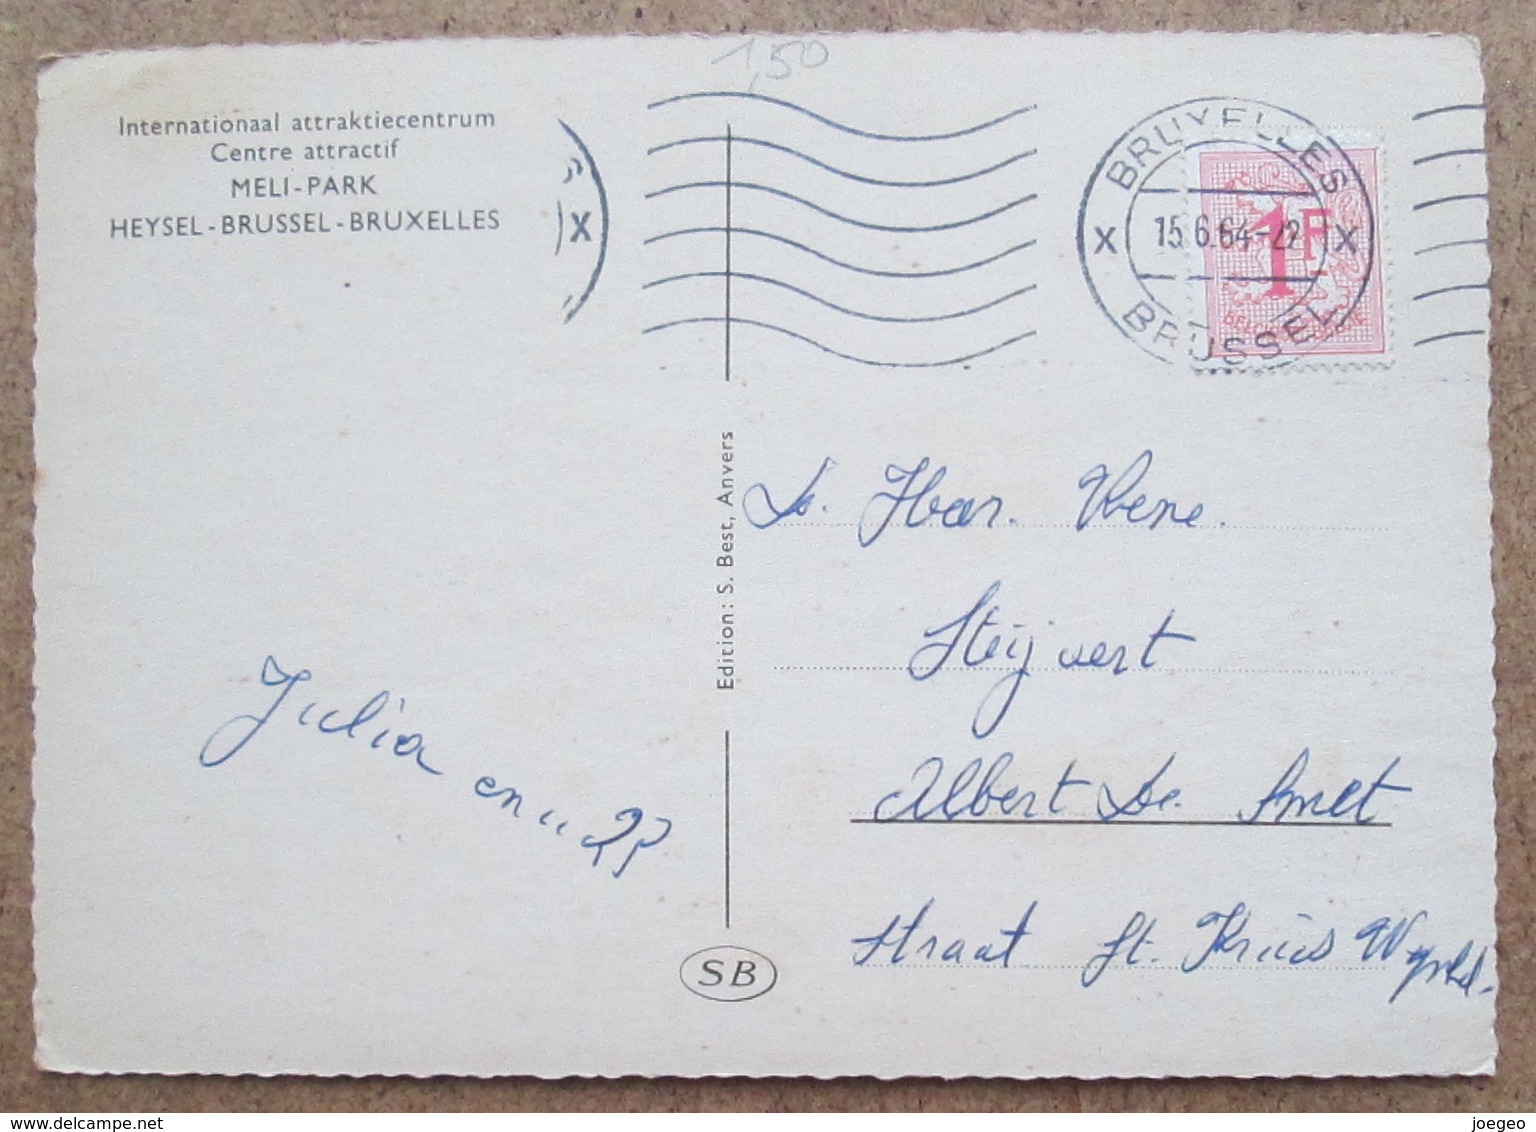 1,50
Internationaal attraktiecentrum
Centre attractif
MELI-PARK
HEYSEL-BRUSSEL-BRUXELLES
X
BRUXELLES
X 15.6.64-22 X
BRUSSEL
1F
Edition: S. Best, Anvers
Steijvert
Julia en
Albert De Smet
Straat St. Kruis
SB
www.delcampe.net
joegeo